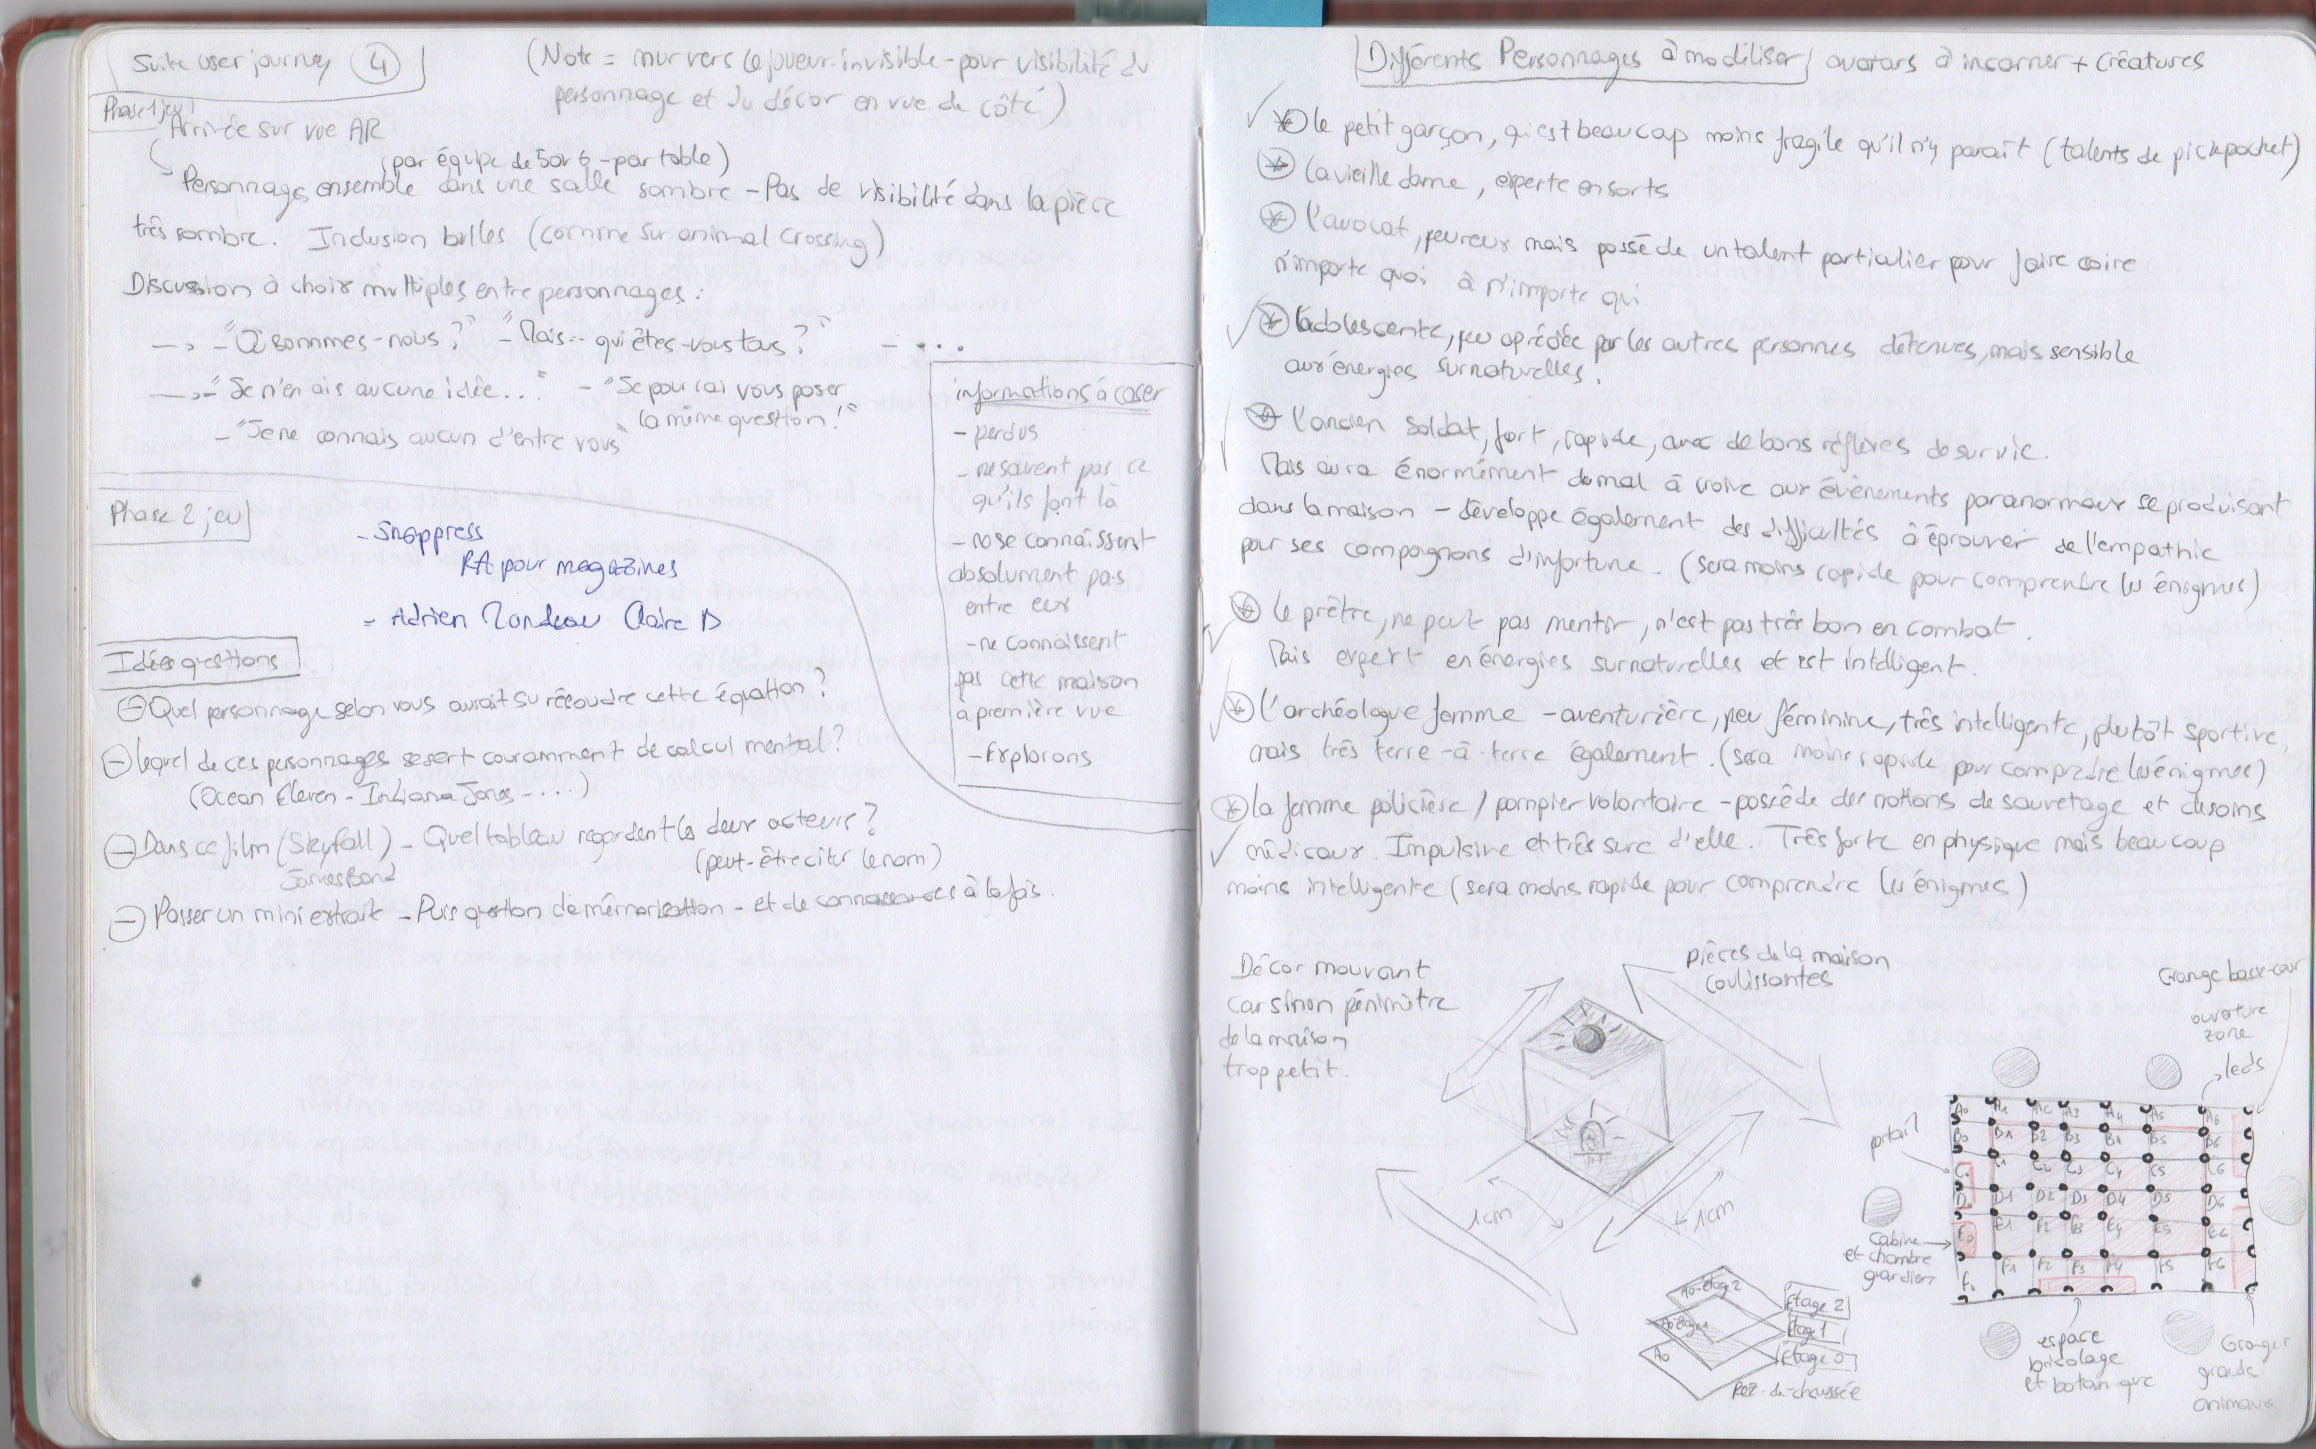 Suite user journey 4
(Note = mur vers le joueur invisible - pour visibilité du
personnage et du décor en vue de côté)
Phase 1 jeu
Arrivée sur vue AR
(par équipe de 5 ou 6 - par table)
Personnages ensemble dans une salle sombre - Pas de visibilité dans la pièce
très sombre. Inclusion bulles (comme sur animal crossing)
Discussion à choix multiples entre personnages :
- "Où sommes-nous ?" - "Mais... qui êtes-vous tous ?" - ...
- "Je n'en ais aucune idée..." - "Je pourrai vous poser
la même question !"
- "Je ne connais aucun d'entre vous"
informations à caser
- perdus
- ne savent pas ce
qu'ils font là
- ne se connaissent
absolument pas
entre eux
- ne connaissent
pas cette maison
à première vue
- Explorons
Phase 2 jeu
- Snappress
RA pour magazines
- Adrien Claire D
Idées questions
- Quel personnage selon vous aurait su résoudre cette équation ?
- lequel de ces personnages se sert couramment de calcul mental ?
(Ocean Eleven - Indiana Jones - ...)
- Dans ce film (Skyfall) - Quel tableau regardent les deux acteurs ?
James Bond
(peut-être citer le nom)
- Passer un mini extrait - Puis question de mémorisation - et de connaissances à la fois.
Différents Personnages à modéliser avatars à incarner + Créatures
le petit garçon, qui est beaucoup moins fragile qu'il n'y parait (talents de pickpocket)
la vieille dame, experte en sorts
l'avocat, peureux mais possède un talent particulier pour faire croire
n'importe quoi à n'importe qui
l'adolescente, peu apréciée par les autres personnes détenues, mais sensible
aux énergies surnaturelles.
l'ancien soldat, fort, rapide, avec de bons réflexes de survie.
Mais aura énormément de mal à croire aux évènements paranormaux se produisant
dans la maison - développe également des difficultés à éprouver de l'empathie
pour ses compagnons d'infortune. (sera moins rapide pour comprendre les énigmes)
le prêtre, ne peut pas mentir, n'est pas très bon en combat.
Mais expert en énergies surnaturelles et est intelligent.
l'archéologue femme - aventurière, peu féminine, très intelligente, plutôt sportive,
mais très terre-à-terre également. (sera moins rapide pour comprendre les énigmes)
la femme policière / pompier volontaire - possède des notions de sauvetage et de soins
médicaux. Impulsive et très sure d'elle. Très forte en physique mais beaucoup
moins intelligente (sera moins rapide pour comprendre les énigmes)
Décor mouvant
car sinon périmètre
de la maison
trop petit.
pièces de la maison
coulissantes
1cm
1cm
A0 étage 2
A0 étage 1
A0
Etage 2
Etage 1
Etage 0
Rez-de-chaussée
Grange basse-cour
ouverture
zone
leds
portail
A0 A1 A2 A3 A4 A5 A6
B0 B1 B2 B3 B4 B5 B6
C0 C1 C2 C3 C4 C5 C6
D0 D1 D2 D3 D4 D5 D6
E0 E1 E2 E3 E4 E5 E6
F0 F1 F2 F3 F4 F5 F6
cabine
et chambre
gardien
espace
bricolage
et botanique
Granges
grands
animaux